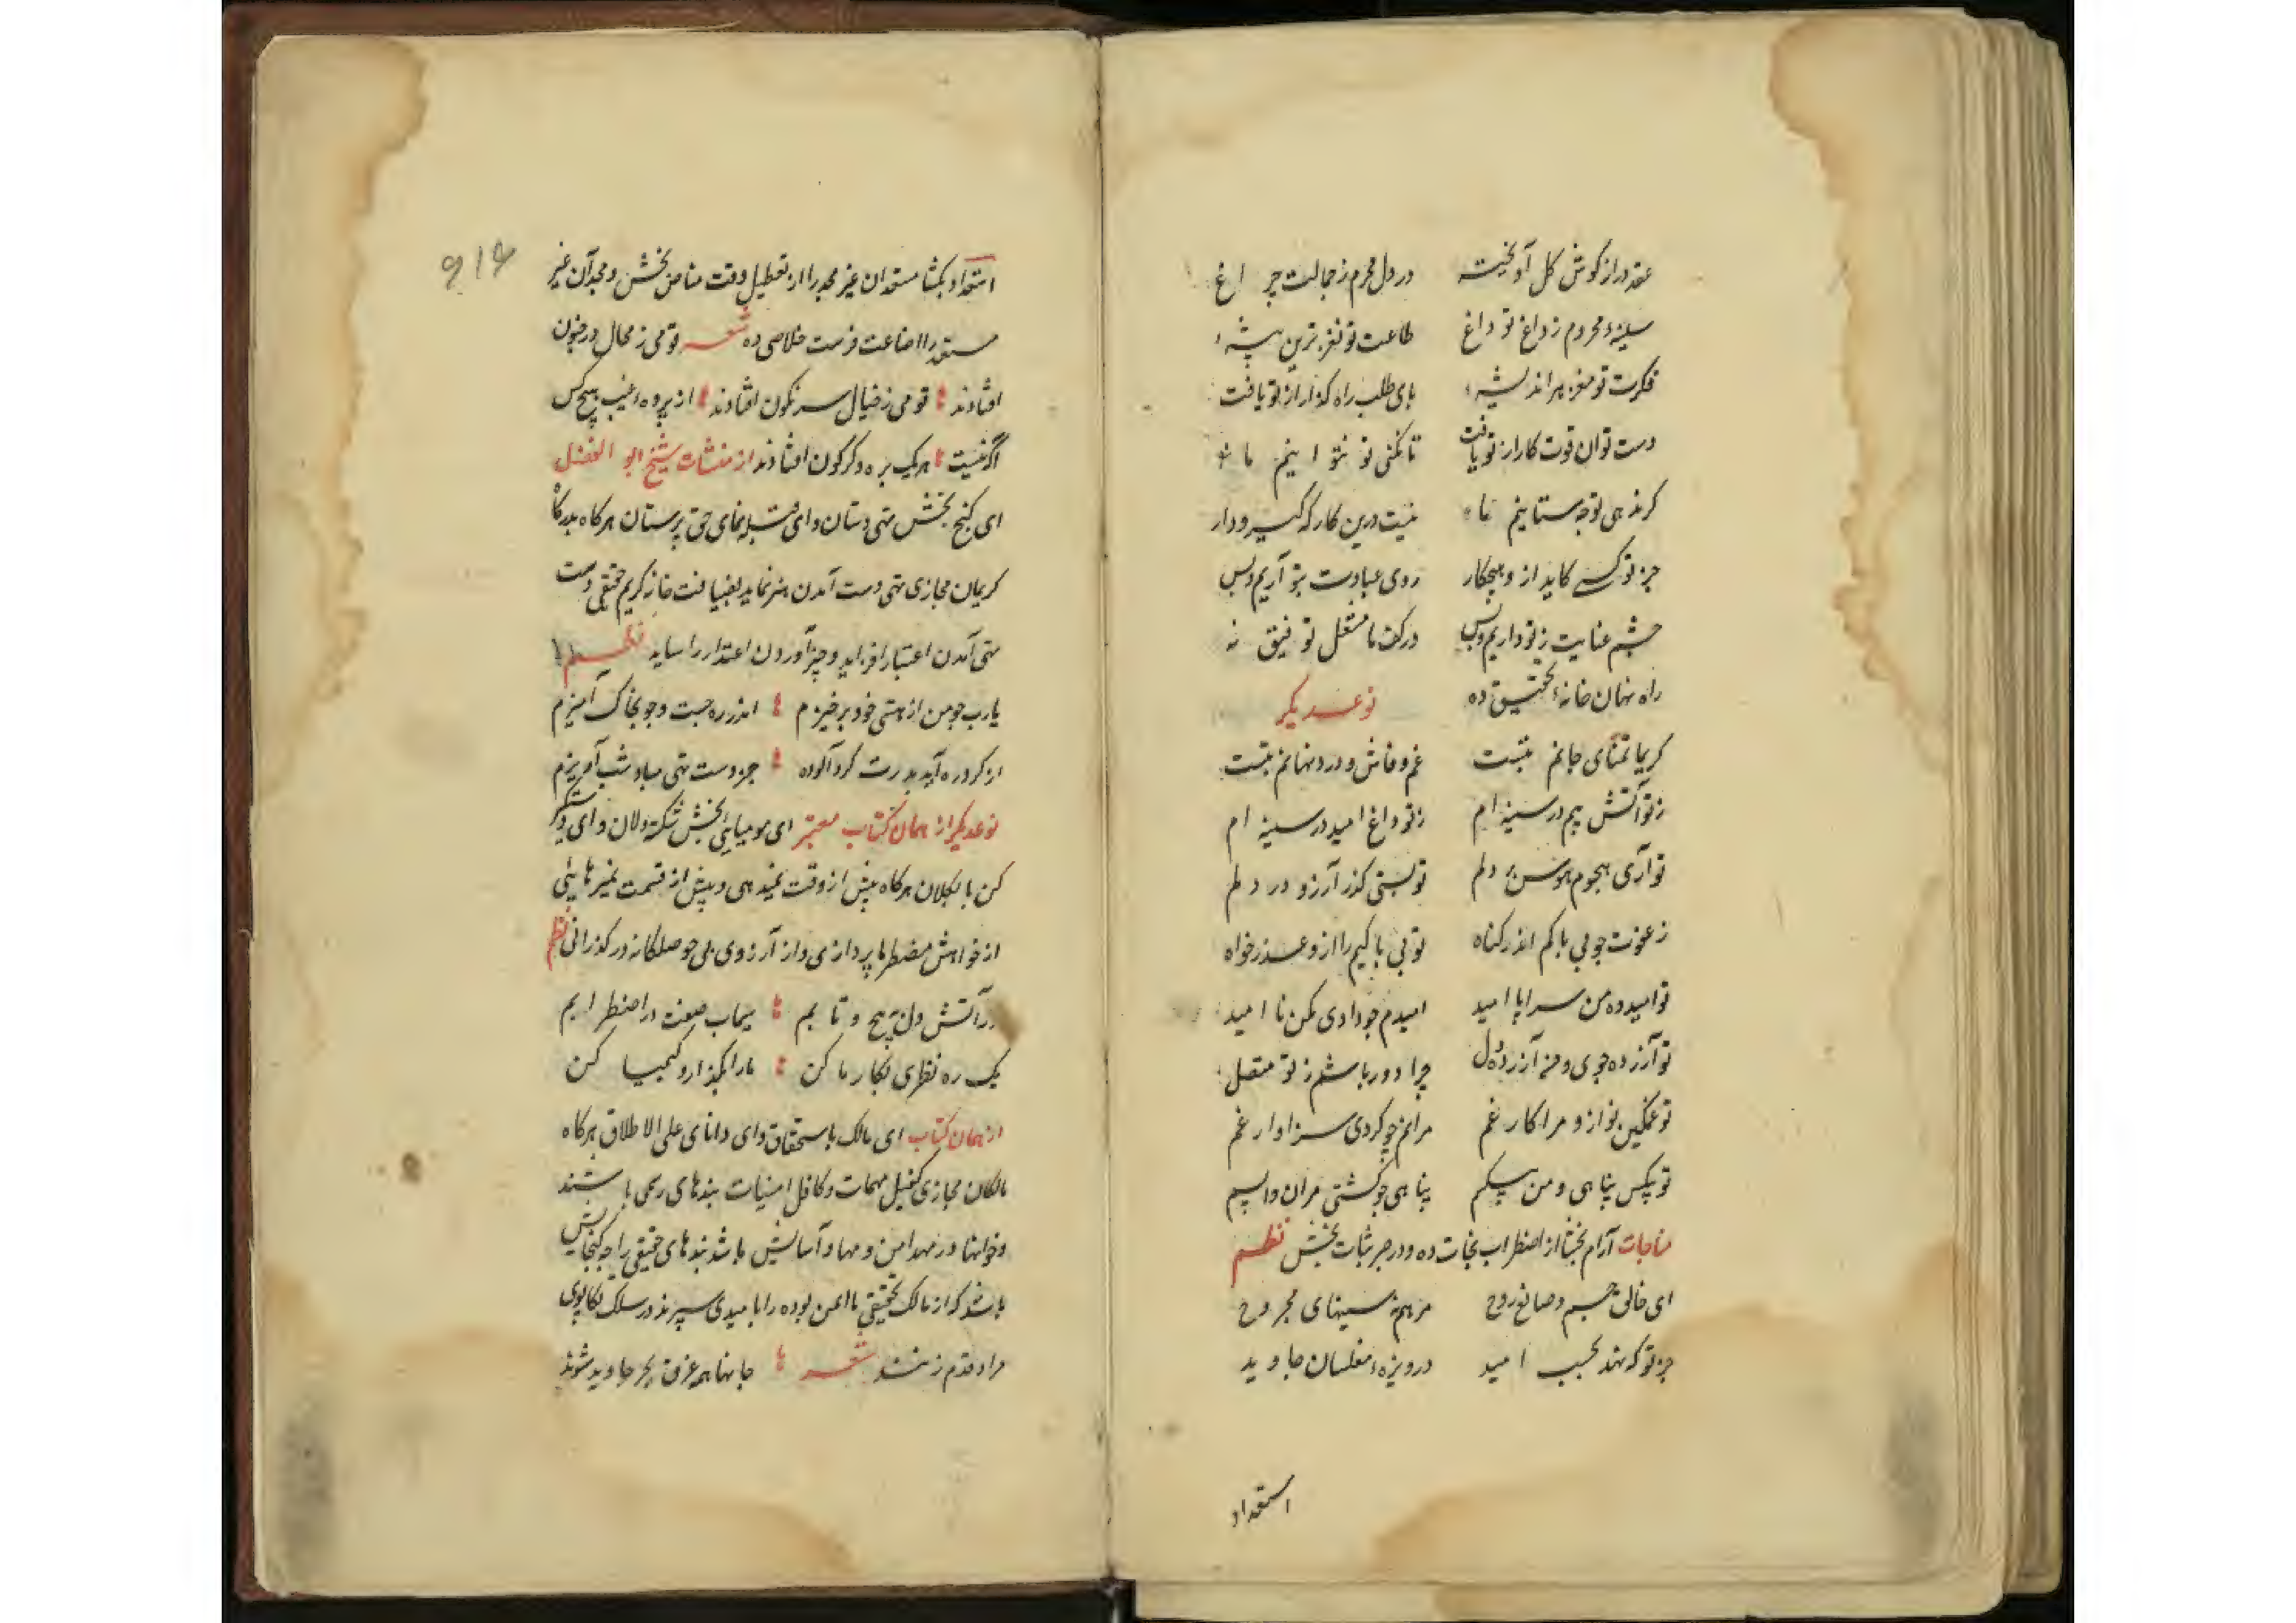 عقد در از کوش کل آویخته در دل محرم ز جمالت چراغ
سینهٔ محروم ز داغ تو داغ طاعت تو نغزترین پیشهٔ
فکرت تو مغز هر اندیشهٔ پای طلب راه کذار از تو یافت
دست توان قوت کار از تو یافت تا نکنی تو نتوانیم ما
کر ندهی تو چه ستانیم ما نیست درین کارکه کیر و دار
جز تو کسی کاید ازو هیچکار روی عبادت بتو آریم و بس
چشم عنایت ز تو داریم و بس در کف ما مشعل توفیق نه
راه نهان خانهٔ تحقیق ده نوعدیکر
کریما تمنای جانم بتست غم و فاش و درد نهانم بتست
ز تو آتش بیم در سینه ام ز تو داغ امید در سینه ام
تو آری هجوم هوس بر دلم تو بستی کذر آرزو در دلم
ز عفوت چو بی باکم اندر کناه تو بی باکیم را ازو عذرخواه
تو امیدده من سراپا امید امیدم چو دادی مکن نا امید
تو آزرده جوی و من آزرده دل چرا دور باشم ز تو متصل
تو غمکین نواز و مرا کار غم مرا نیز چو کردی سزاوار غم
تو بیکس پناهی و من بیکسم پناهی چو کشتی مران واپسم
مناجات آرام بخشا از اضطراب نجات ده و در صبر ثبات بخش نظم
ای خالق جسم و صانع روح مرهم نه سینهای مجروح
جز تو که نهد بجیب امید درویزهٔ مفلسان جاوید
استعداد
۶۱۶
استعداد بخشا مستعدان غیر مجد را از تعطیل وقت مناص بخش و مجدآن غیر
مستعد را از اضاعت فرصت خلاصی ده شعر قومی ز محال در جنون
افتادند قومی ز خیال سرنکون افتادند از پردهٔ غیب هیچ کس
اکه نیست هر یک بره دکرکون افتادند از منشات شیخ ابو الفضل
ای کنج بخش تهی دستان و ای قبله نمای حق پرستان هرکاه بدرکاه
کریمان مجازی تهی دست آمدن هنر نماید بضیافت خانه کریم حقیقی دست
تهی آمدن اعتبار افزاید و چیز آوردن اعتذار را ساید نظم
یارب چو من از هستی خود برخیزم اندر ره جست و جو بخاک آمیزم
از کرد ره آید بدرت کرد آلوده جز دست تهی مباد شب آمیزم
نوعدیکر از همان کتاب معتبر ای مومیایی بخش شکسته دلان و ای دستکیر
کن پا بکلان هرکاه پیش از وقت نمیدهی و بیش از قسمت نمیرسانی
از خواهش مضطرها پردازی و از آرزوی بی حوصلکانه درکذرانی نظم
در آتش دل به پیچ و تابم سیماب صفت در اضطرابم
یک ره نظری بکار ما کن ما را بکداز و کیمیا کن
از همان کتاب ای مالک باستحقاق و ای دانای علی الاطلاق هرکاه
مالکان مجازی کفیل مهمات و کافل امنیات بندهای رسمی باشند
و خوابها در مهد امن و مهاد آسایش باشد بندهای حقیقی را چه کنجایش
باشد که از مالک حقیقی نا ایمن بوده راه نا امیدی سپرند و در سلک تکاپوی
مراد قدم زنند شعر جانها همه غرق بحر جاوید شوند